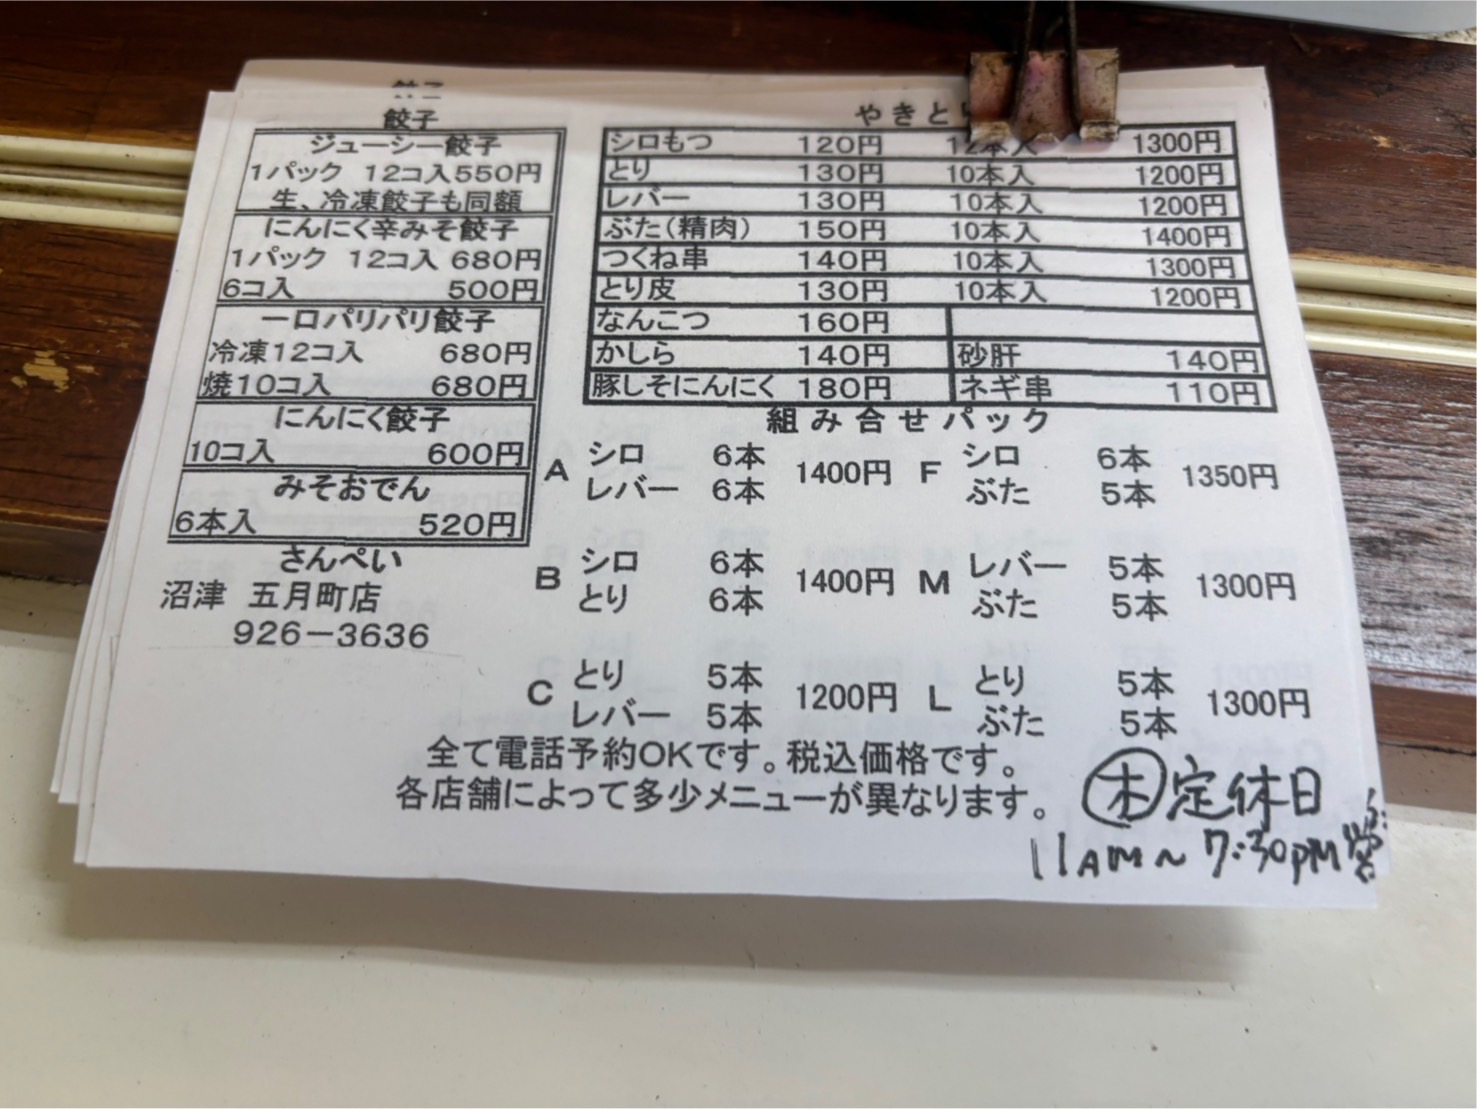 餃子
餃子
ジューシー餃子
1パック 12コ入550円
生、冷凍餃子も同額
にんにく辛みそ餃子
1パック 12コ入 680円
6コ入 500円
一口パリパリ餃子
冷凍12コ入 680円
焼10コ入 680円
にんにく餃子
10コ入 600円
みそおでん
6本入 520円
さんぺい
沼津 五月町店
926-3636
やきとり
シロもつ 120円 12本入 1300円
とり 130円 10本入 1200円
レバー 130円 10本入 1200円
ぶた(精肉) 150円 10本入 1400円
つくね串 140円 10本入 1300円
とり皮 130円 10本入 1200円
なんこつ 160円
かしら 140円 砂肝 140円
豚しそにんにく 180円 ネギ串 110円
組み合せパック
A シロ 6本 レバー 6本 1400円
F シロ 6本 ぶた 5本 1350円
B シロ 6本 とり 6本 1400円
M レバー 5本 ぶた 5本 1300円
C とり 5本 レバー 5本 1200円
L とり 5本 ぶた 5本 1300円
全て電話予約OKです。税込価格です。
各店舗によって多少メニューが異なります。
木 定休日
11AM~7:30PM